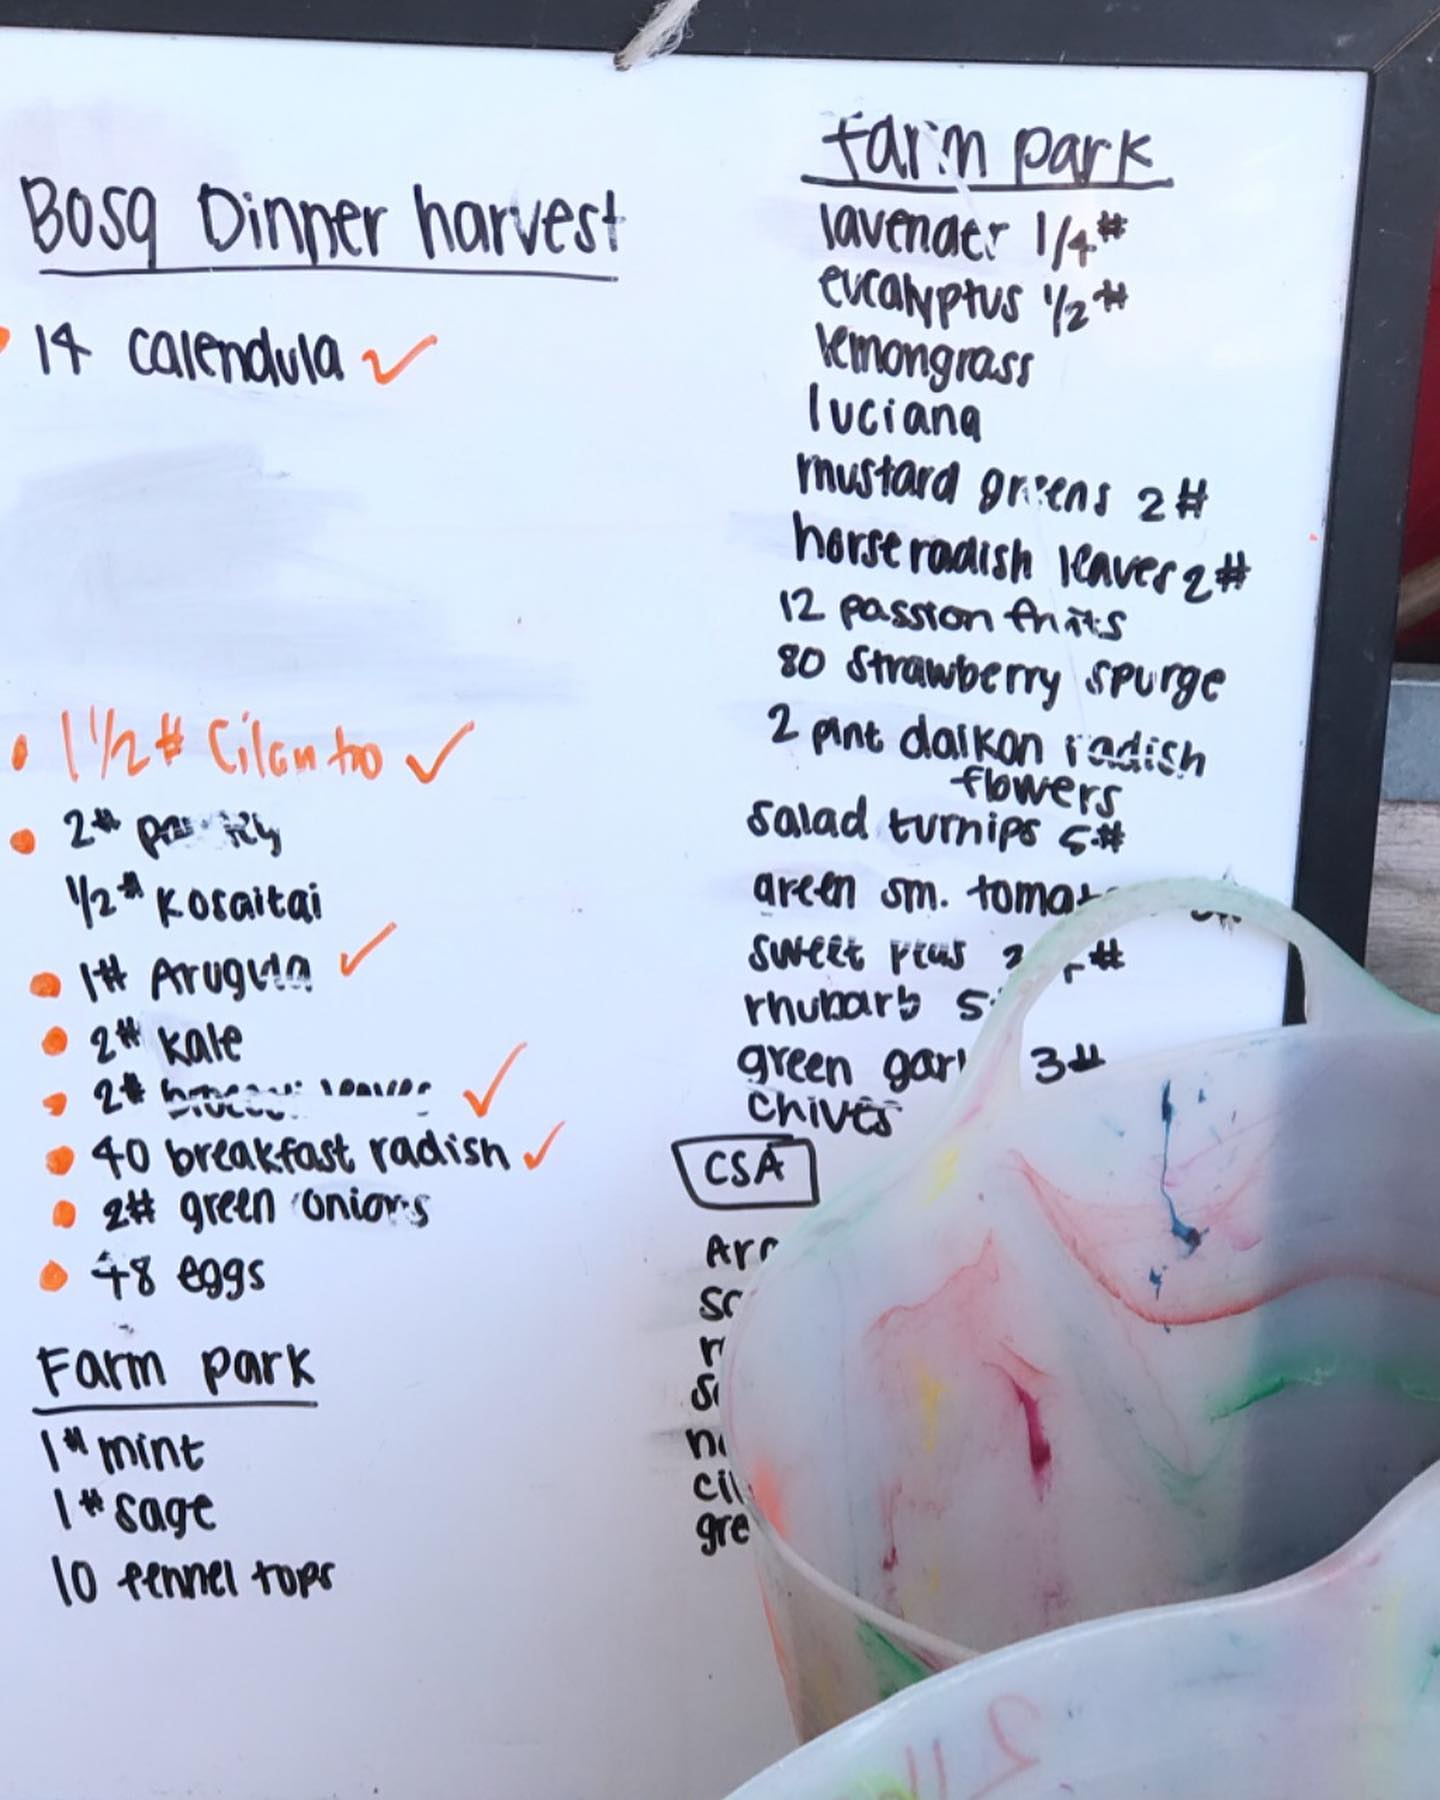 Bosq Dinner harvest
14 Calendula ✓
1 1/2 # Cilantro ✓
2# parsley
1/2 # Kosaitai
1# Arugula ✓
2# kale
2# broccoli leaves ✓
40 breakfast radish ✓
2# green onions
48 eggs
Farm park
1# mint
1# sage
10 fennel tops
farm park
lavender 1/4#
eucalyptus 1/2#
lemongrass
luciana
mustard greens 2#
horseradish leaves 2#
12 passion fruits
80 Strawberry spurge
2 pint daikon radish
flowers
salad turnips 5#
green sm.
sweet peas
rhubarb 5
green 3#
chives
CSA